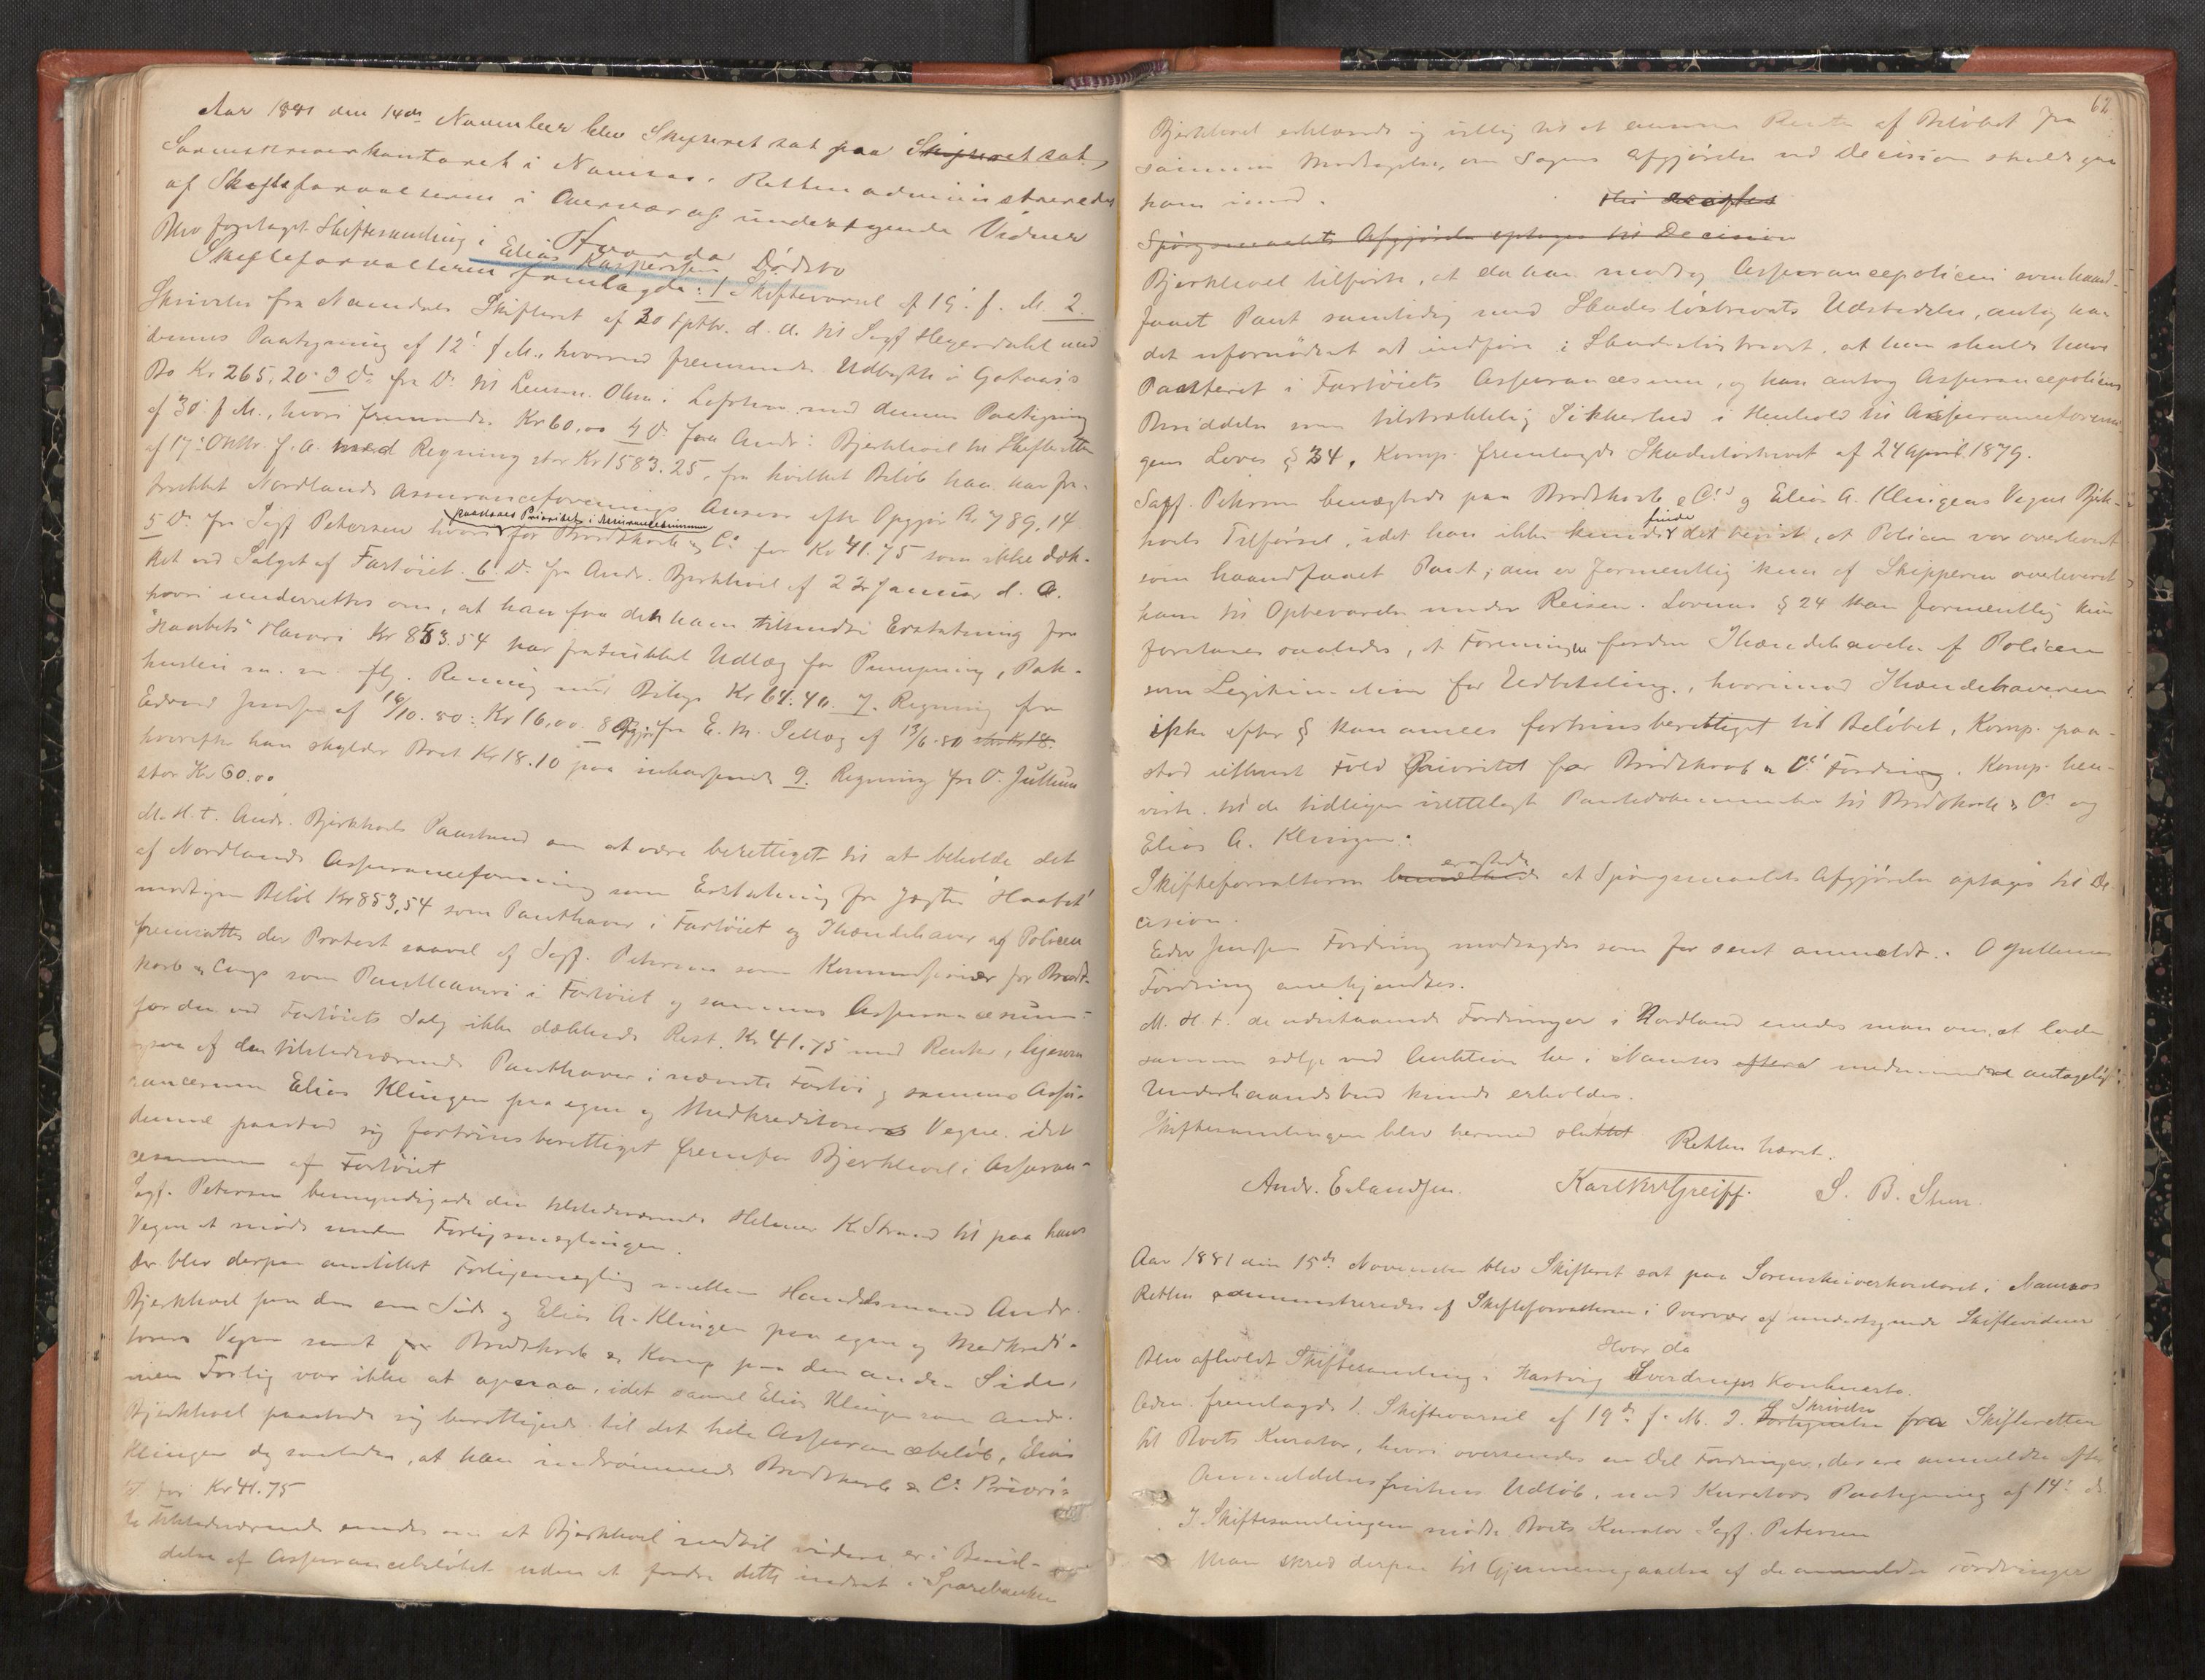 Aar 1881 den 14de November blev Skifteret sat paa Skifteret sat
Sorenskriverkontoret i Namsos. Retten administreredes
af Skifteforvalteren i Overvær af undertegnede Vidner
Hvorda
Blev foretaget Skiftesamling i Elias Kaspersens Dødsbo
Skifteforvalteren fremlagde: 1. Skiftevarsel af 19. f. M. 2.
Skrivelse fra Namdals Skifteret af 30 Septbr. d. A. til Sagf Heyerdahl med
dennes Paategning af 12' f. M., hvorved fremsendes Udbytte i Gotaas's
Bo Kr 265,20. 3 Do fra Do til Lensm. Olsen i Lofoten med dennes Paategning
af 30' f M., hvori fremsendes Kr 60,00 4 Do fra Andr. Bjerkhoel til Skifteretten
af 17' Oktbr. f. A. med Regning stor Kr 1583.25, fra hvilket Beløb han har fra-
trukket Nordlands Assuranceforenings Ansvar efter Opgjør Kr 789,14
5 Do fra Sagf Petersen hvori paastaaes Prioritet i Assurancesummen for Brodtkorb & Co for Kr 41.75 som ikke dæk-
ket ved Salget af Fartøiet. 6. Do fra Andr. Bjerkhoel af 22 Januar d. A.
hvori underrettes om, at han fra den ham tilsendte Erstatning for
"Haabets" Havari Kr 853.54 har fratrukket Udlæg for Pumpning, Pak-
husleie m. m. flg. Regning med Bilag Kr 64.40. 7. Regning fra
Edvard Jensen af 16/10. 80: Kr 16,00. 8 Opgjør fra E. M. Sellæg af 13/6.80 stor Kr 18.
hvorefter han skylder Boet Kr 18.10 paa inkasserede 9. Regning fra O. Jullum
stor Kr 60.00
M. H. t. Andr. Bjerkhoels Paastand om at være berettiget til at beholde det
af Nordlands Assuranceforening som Erstatning for Jagten "Haabet"
modtagne Beløb Kr 853,54 som Panthaver i Fartøiet og Ihændehaver af Policen
fremsattes der Protest saavel af Sagf. Petersen som Kommissionær for Brodt-
korb & Comp som Panthavere i Fartøiet og sammes Assurancesum
for den ved Fartøiets Salg ikke dækkede Rest. Kr 41.75 med Renter, ligesom
ogsaa af den tilstedeværende Panthaver i nævnte Fartøi og sammes Assu-
rancesum Elias Klingen paa egen og Medkreditorers Vegne. idet
denne paastod sig fortrinsberettiget fremfor Bjerkhoel i Assuran-
cesummen af Fartøiet
Sagf. Petersen bemyndigede den tilstedeværende Helmer K. Strand til paa hans
Vegne at møde under Forligsmæglingen.
Der blev derpaa anstillet Forligsmægling mellem Handelsmand Andr.
Bjerkhoel paa den ene Side og Elias A. Klingen paa egen og Medkredi-
torers Vegne samt for Brodtkorb & Komp paa den anden Side,
men Forlig var ikke at opnaa, idet saavel Elias Klingen som Andr.
Bjerkhoel paastode sig berettigede til det hele Assurancebeløb, Elias
Klingen dog saaledes, at han indrømmede Brodtkorb & Co Priori-
tet for Kr 41.75
De tilstedeværende enedes om at Bjerkhoel indtil videre er i Besid-
delse af Assurancebeløbet uden at fordre dette indsat i Sparebanken
62
Bjerkhoel erklærede sig villig til at svare Rente af Beløbet fra
sammes Modtagelse, om Sagens Afgjørelse ved Decision skulde gaa
ham imod.
Spørgsmaalets Afgjørelse optages til Decision
Bjerkhoel tilførte, at da han modtog Assurancepolicen som haand-
faaet Pant samtidig med Skadesløsbrevets Udstedelse, antog han
det ufornødent at indføre i Skadesløsbrevet, at han skulde have
Panteret i Fartøiets Assurancesum, og han antog Assurancepolicens
Besiddelse som tilstrækkelig Sikkerhed i Henhold til Assuranceforenin-
gens Loves § 34, Komp. fremlagde Skadesløsbrevet af 24 April 1879.
Sagf. Petersen benægtede paa Brodtkorb & Co's og Elias A. Klingens Vegne Bjerk-
hoels Tilførsel, idet han ikke kunde finde det bevist, at Policen var overleveret
som haandfaaet Pant; den er formentlig kun af Skipperen overleveret
ham til Opbevarelse under Reisen. Lovens § 24 kan formentlig kun
forstaaes saaledes, at Foreningen fordrer Ihændehavelse af Policen
som Legitimation for Udbetaling, hvorimod Ihændehaveren
ikke efter § kan ansees fortrinsberettiget til Beløbet, Komp. paa-
stod uithvert Fald Prioritet for Brodtkorb & Co's Fordring. Komp. hen-
viste til de tidligere irettelagte Pantedokumenter til Brodtkorb & Co og
Elias A. Klingen.
Skifteforvalteren bemærkede eragtede at Spørgsmaalets Afgjørelse optages til De-
cision.
Edv Jensens Fordring modsagdes som for sent anmeldt. O Jullums
Fordring anerkjendtes.
M. H. t. de udestaaende Fordringer i Nordland enedes man om at lade
samme sælge ved Auktion her i Namsos medmindre antageligt
Underhaandsbud kunde erholdes.
Skiftesamlingen blev hermed sluttet
Retten hævet.
Andr. Erlandsen. Karl Greiff. S. B. Sten.
Aar 1881 den 15de November blev Skifteret sat paa Sorenskriverkontoret i Namsos
Retten administreredes af Skifteforvalteren i Overvær af undertegnede Skiftevidner
Hvor da
Blev afholdt Skiftesamling i Hartvig Sverdrups Konkursbo.
Adm. fremlagde 1. Skiftevarsel af 19de f. M. 2. Fortegnelse Skrivelse fra Skifteretten
til Boets Kurator, hvori oversendes en Del Fordringer, der ere anmeldte efter
Anmeldelsesfristens Udløb, med Kurators Paategning af 14' ds.
I Skiftesamlingen mødte Boets Kurator Sagf. Petersen
Man skred derpaa til Gjennemgaaelse af de anmeldte Fordringer